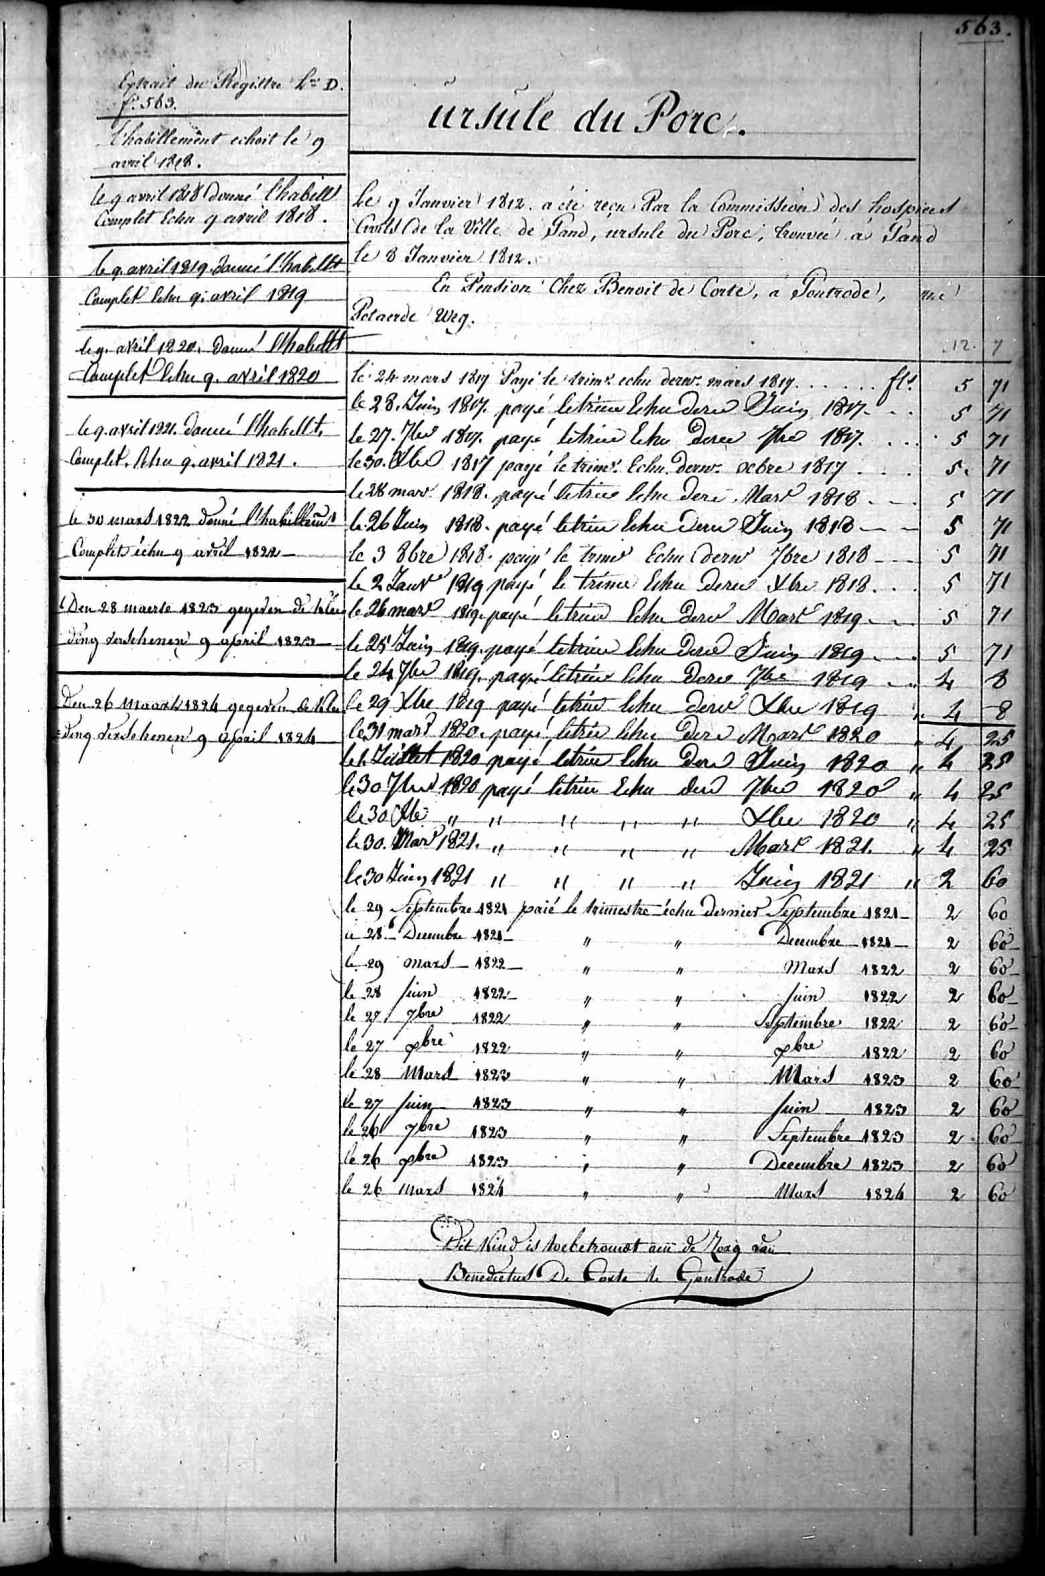 563.
Extrait du Registre Lre D.
f° 563.
L'habillement echoit le 9
avril 1818.
le 9 avril 1818 donné l'habillt
Complet Echu 9 avril 1818.
le 9. avril 1819. donné l'habillt
Complet Echu 9. avril 1819
le 9. avril 1820. donné l'habillt
Complet Echu 9. avril 1820
le 9. avril 1821. donné l'habillt.
Complet. Echu 9. avril 1821.
le 30 mars 1822 donné l'habillemt
Complet échu 9 avril 1822
Den 28 maerte 1823 gegeven de klee
ding verschenen 9 april 1823
Den 26 Maart 1824 gegeven de klee
ding verschenen 9 April 1824
ursule du Porc.
Le 9 Janvier 1812. a été reçu Par la Commission des hospices
Civils de la Ville de Gand, ursule du Porc, trouvée a Gand
le 8 Janvier 1812.
En Pension Chez Benoit de Corte, á Gontrode, rue
Potaerde Weg.
12. 7
le 24 mars 1817 Payé le trimr. echu dernr. mars 1817 . . . . . . fls. 5 71
le 28. Juin 1817. payé le trim Echu dern Juin 1817 . . . 5 71
le 27. 7bre 1817. payé le trim Echu dern 7bre 1817 . . . . 5 71
le 30. Xbre 1817 payé le trimr. Echu dernr. xcbre 1817 . . . . 5. 71
le 28 mars 1818. payé le trim Echu dern Mars 1818 . . . 5 71
le 26 Juin 1818. payé le trim Echu dern Juin 1818 5 71
le 3 8bre 1818. payé le trimr Echu dernr 7bre 1818 5 71
le 2 Janvr 1819 payé le trimr Echu dern Xbre 1818 . . . 5 71
le 26 mars 1819 payé le trim Echu dern Mars 1819 5 71
le 25 Juin 1819. payé le trim Echu dern Juin 1819 . . . 5 71
le 24 7bre 1819. payé le trim Echu dern 7bre 1819 " 4 8
le 29 Xbre 1819 payé le trim Echu dern Xbre 1819 " 4 8
le 31 mars 1820. payé le trim Echu dern Mars 1820 " 4 25
le 1 Juillet 1820 payé le trim Echu dern Juin 1820 " 4 25
le 30 7bre 1820 payé le trim Echu dern 7bre 1820 " 4 25
le 30 Xbre " " " " " Xbre 1820 " 4 25
le 30. Mars 1821. " " " " Mars 1821. " 4 25
le 30 Juin 1821 " " " " Juin 1821 " 2 60
le 29 Septembre 1821 paié le trimestre échu dernier Septembre 1821 2 60
le 28 Decembre 1821 " " Decembre 1821 2 60
le 29 mars 1822 " " Mars 1822 2 60
le 28 juin 1822 " " juin 1822 2 60
le 27 7bre 1822 " " Septembre 1822 2 60
le 27 xbre 1822 " " xbre 1822 2 60
le 28 Mars 1823 " " Mars 1823 2 60
le 27 juin 1823 " " juin 1823 2 60
le 26 7bre 1823 " " Septembre 1823 2 60
le 26 xbre 1823 " " Decembre 1823 2 60
le 26 mars 1824 " " Mars 1824 2 60
Dit Kind is toebetrouwt aen de Zorg van
Benedictus De Corte te Gontrode